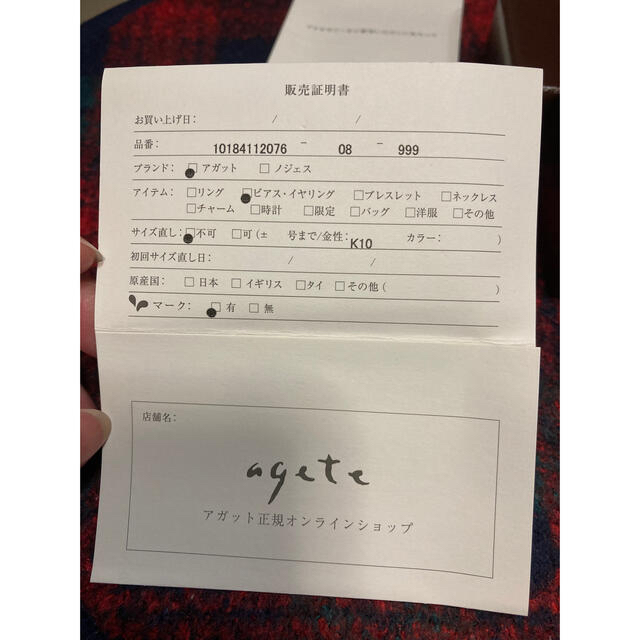 販売証明書
お買い上げ日: / /
品番: 10184112076 - 08 - 999
ブランド: □アガット □ノジェス
アイテム: □リング □ピアス・イヤリング □ブレスレット □ネックレス
□チャーム □時計 □限定 □バッグ □洋服 □その他
サイズ直し: □不可 □可(± 号まで/金性: K10 カラー: )
初回サイズ直し日: / /
原産国: □日本 □イギリス □タイ □その他( )
マーク: □有 □無
店舗名:
agete
アガット正規オンラインショップ